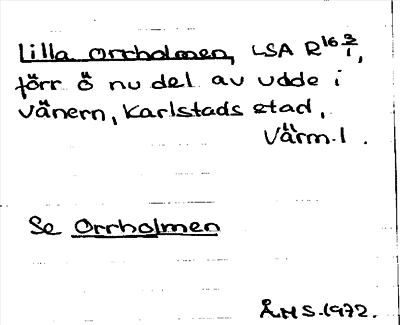 Lilla Orrholmen, LSA R16 3/1,
förr ö nu del av udde i
Vänern, Karlstads stad,
Värm.l.
Se Orrholmen
ÅHS.1972.